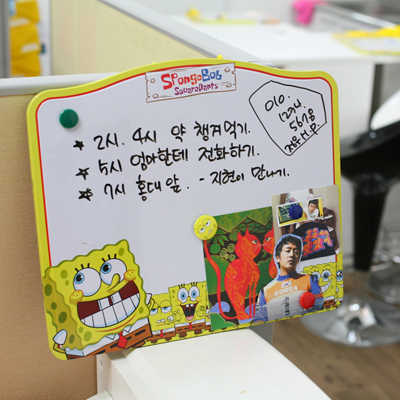 SPongeBob
SquarePants
* 2시. 4시 약 챙겨먹기.
* 5시 엄마한테 전화하기.
* 7시 홍대앞. - 지현이 만나기.
010.
1234.
5678
KOREA